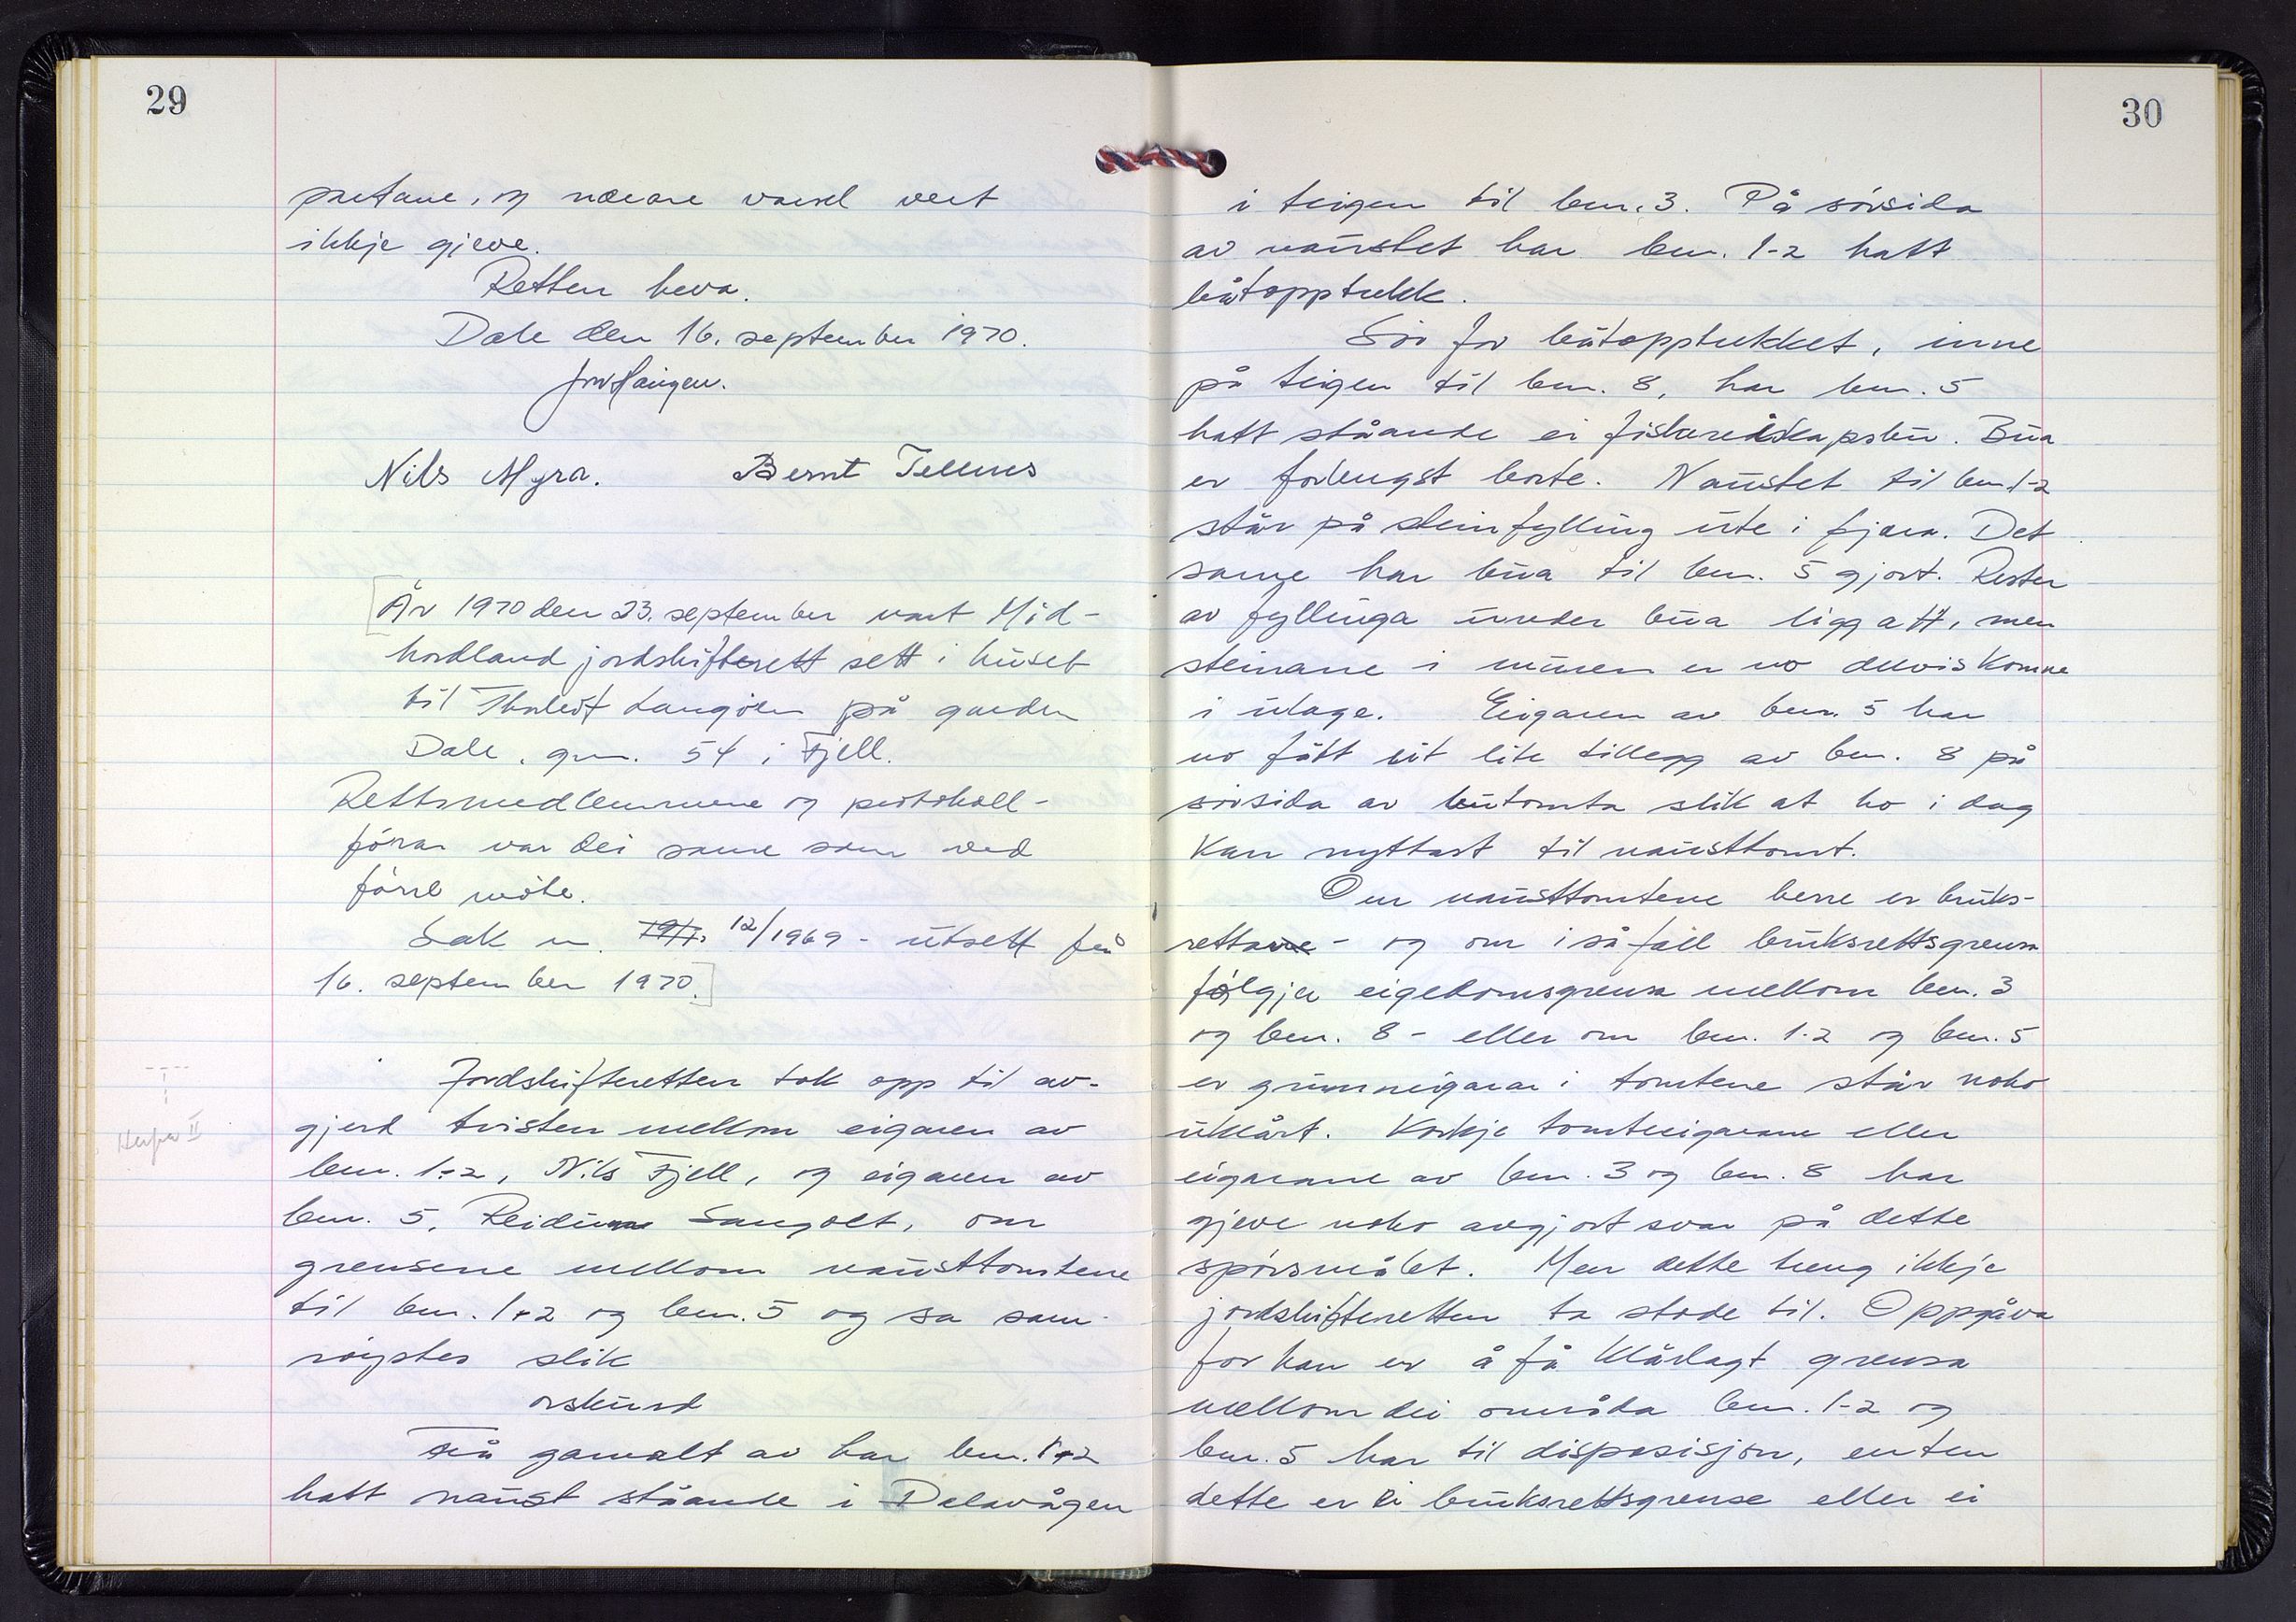 29
partane, og nærare varsel vert
ikkje gjeve.
Retten heva.
Dale den 16. september 1970.
Nils Myra. Bernt Tellnes
År 1970 den 23. september vart Mid-
hordland jordskifterett sett i huset
til Thorleif Langøen på garden
Dale, gnr. 54 i Fjell.
Rettsmedlemmene og protokoll-
førar var dei same som ved
førre møte.
Sak nr. 12/1969 - utsett frå
16. september 1970.
Jordskifteretten tok opp til av-
gjerd tvisten mellom eigaren av
bnr. 1+2, Nils Fjell, og eigaren av
bnr. 5, Reidunn Sangolt, om
grensene mellom nausttomtene
til bnr. 1+2 og bnr. 5 og sa sam-
røystes slik
orskurd
Frå gamalt av har bnr. 1+2
hatt naust ståande i Dalavågen
30
i teigen til bnr. 3. På sørsida
av naustet har bnr. 1-2 hatt
båtopptrekk.
Sør for båtopptrekket, inne
på teigen til bnr. 8, har bnr. 5
hatt ståande ei fiskereiskapsbu. Bua
er forlengst borte. Naustet til bnr. 1-2
står på steinfylling ute i fjæra. Det
same har bua til bnr. 5 gjort. Rester
av fyllinga under bua ligg att, men
steinane i muren er no delvis komne
i ulage. Eigaren av bnr. 5 har
no fått eit lite tillegg av bnr. 8 på
sørsida av butomta slik at ho i dag
kan nyttast til nausttomt.
Om nausttomtene berre er bruks-
rettane - og om i så fall bruksrettsgrensa
følgjer eigedomsgrensa mellom bnr. 3
og bnr. 8 - eller om bnr. 1-2 og bnr. 5
er grunneigarar i tomtene står noko
uklårt. Korkje tomteeigarane eller
eigarane av bnr. 3 og bnr. 8 har
gjeve noko avgjort svar på dette
spørsmålet. Men dette treng ikkje
jordskifteretten ta stode til. Oppgåva
for han er å få klårlagt grensa
mellom dei områda bnr. 1-2 og
bnr. 5 har til disposisjon, enten
dette er ei bruksrettsgrense eller ei